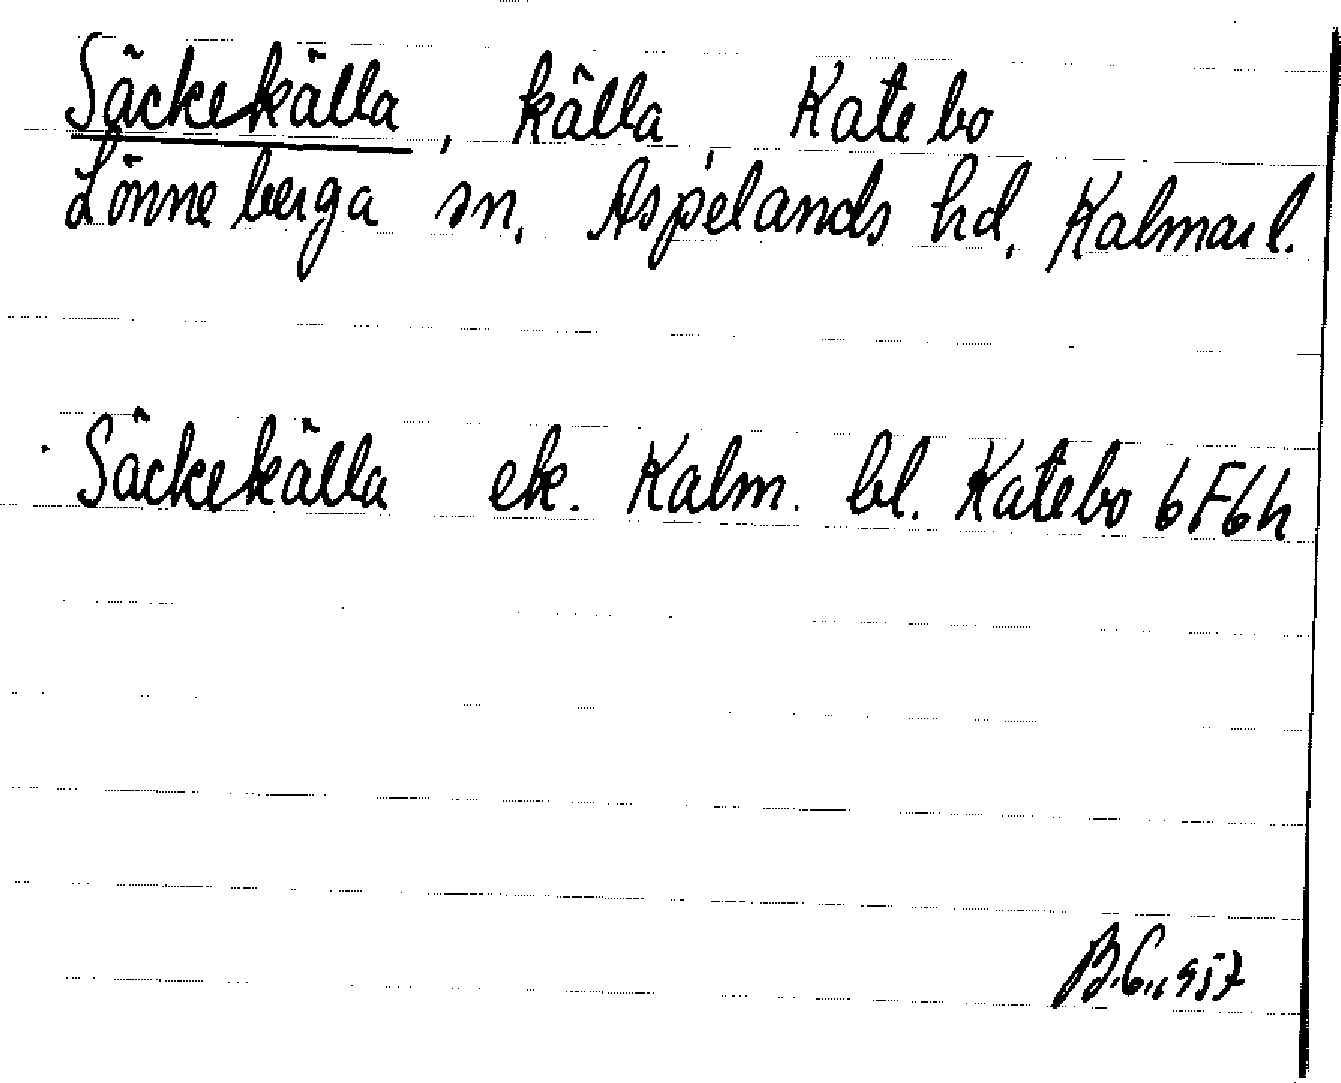 Säckekälla, källa, Katebo
Lönneberga sn. Aspelands hd. Kalmar l.
Säckekälla ek. Kalm. bl. Katebo 6F6h
B.C. 1957